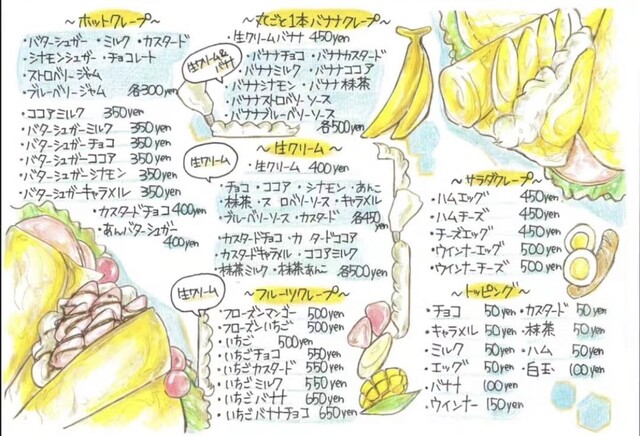 〜ホットクレープ〜
・バターシュガー・ミルク・カスタード
・シナモンシュガー・チョコレート
・ストロベリージャム
・ブルーベリージャム 各300yen
・ココアミルク 350yen
・バターシュガーミルク 350yen
・バターシュガーチョコ 350yen
・バターシュガーココア 350yen
・バターシュガーシナモン 350yen
・バターシュガーキャラメル 350yen
・カスタードチョコ 400yen
・あんバターシュガー
400yen
〜丸ごと1本バナナクレープ〜
・生クリームバナナ 450yen
生クリーム&バナナ
・バナナチョコ・バナナカスタード
・バナナミルク・バナナココア
・バナナシナモン・バナナ抹茶
・バナナストロベリーソース
・バナナブルーベリーソース
各500yen
〜生クリーム〜
・生クリーム 400yen
生クリーム
・チョコ・ココア・シナモン・あんこ
・抹茶・ス ロベリーソース・キャラメル
・ブルーベリーソース・カスタード 各450yen
・カスタードチョコ・カ タードココア
・カスタードキャラメル・ココアミルク
・抹茶ミルク・抹茶あんこ 各500yen
〜フルーツクレープ〜
生クリーム
・フローズンマンゴー 500yen
・フローズンいちご 500yen
・いちご 500yen
・いちごチョコ 550yen
・いちごカスタード 550yen
・いちごミルク 550yen
・いちごバナナ 650yen
・いちごバナナチョコ 650yen
〜サラダクレープ〜
・ハムエッグ 450yen
・ハムチーズ 450yen
・チーズエッグ 450yen
・ウインナーエッグ 500yen
・ウインナーチーズ 500yen
〜トッピング〜
・チョコ 50yen・カスタード 50yen
・キャラメル 50yen・抹茶 50yen
・ミルク 50yen・ハム 50yen
・エッグ 50yen・白玉 100yen
・バナナ 100yen
・ウインナー 150yen